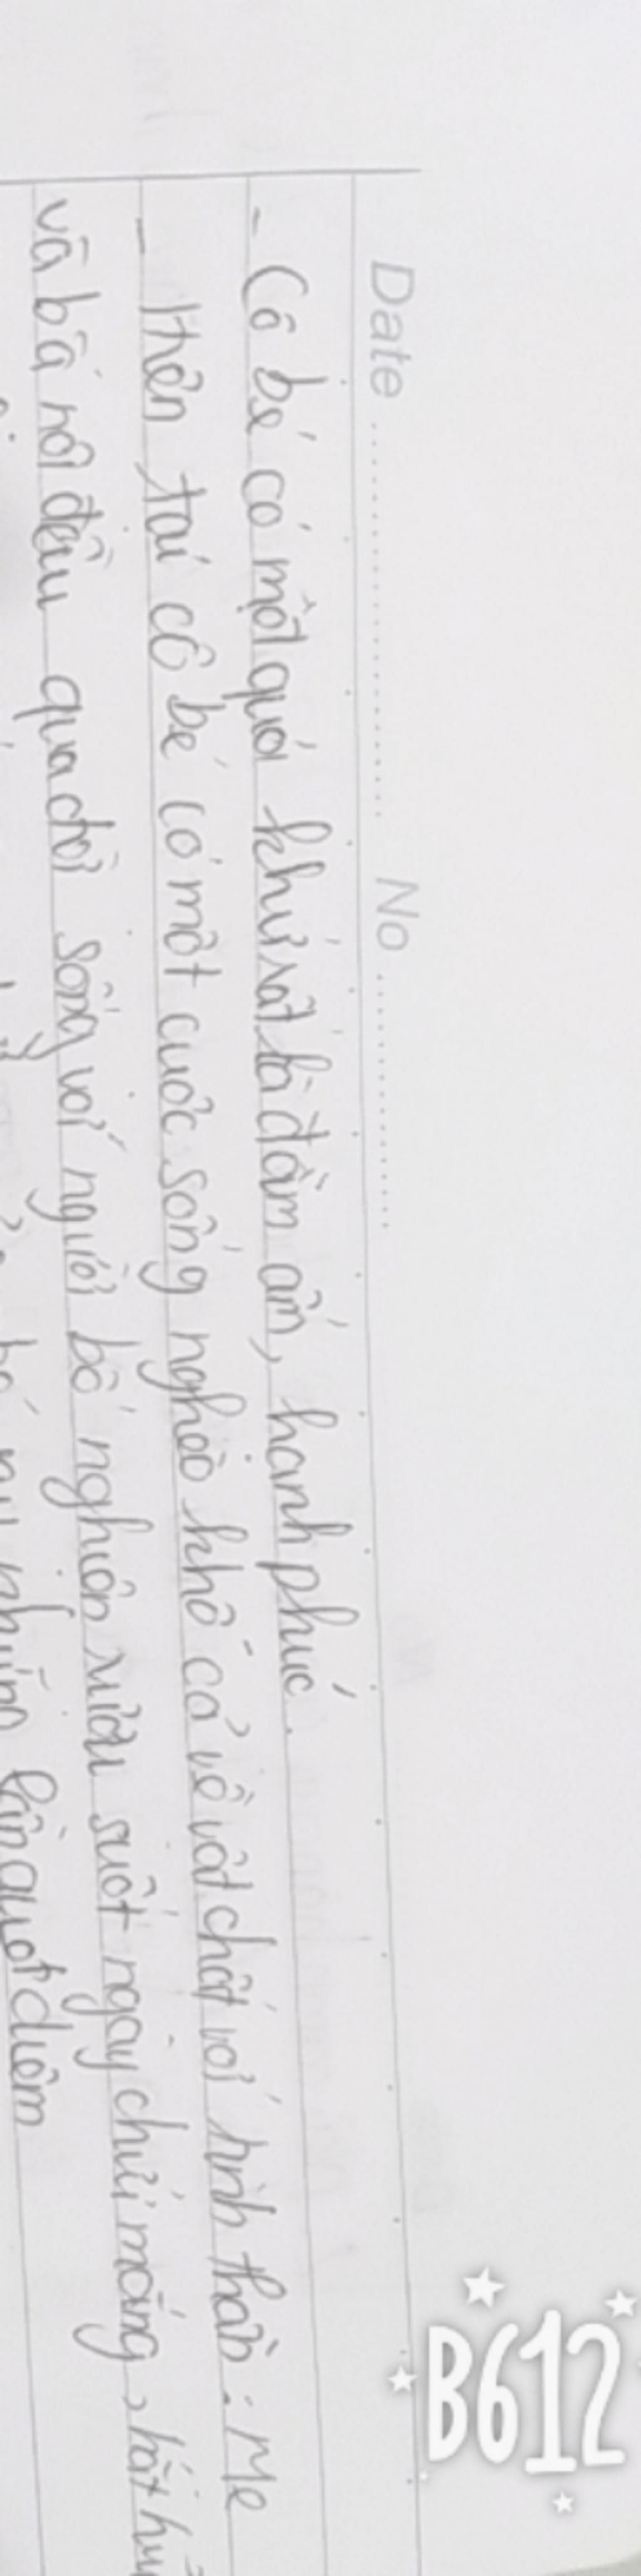 Date ........................ No ................
- Cô bé có một quá khứ rất là đầm ấm, hạnh phúc.
- Hiện tại cô bé có một cuộc sống nghèo khổ cả về vật chất với tinh thần. Mẹ
và bà nội đều qua đời sống với người bố nghiện rượu suốt ngày chửi mắng, hắt
những lần quẹt diêm
B612